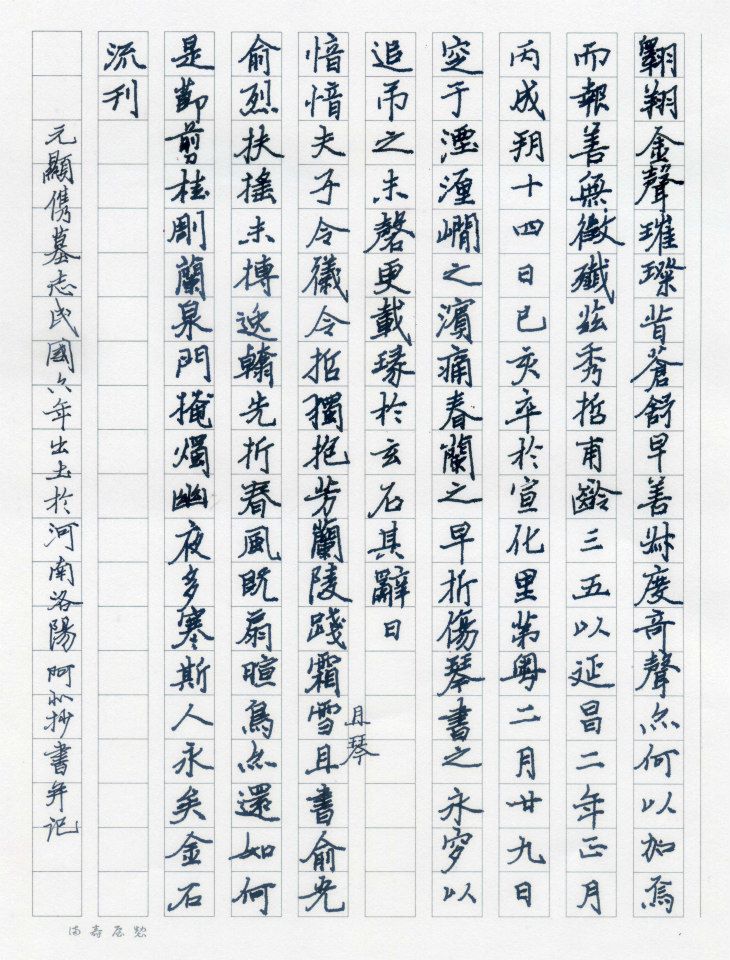 翱翔金聲璀璨昔蒼舒早善叔度奇聲亦何以加焉
而報善無徵殲茲秀哲甫齡三五以延昌二年正月
丙戌朔十四日己亥卒於宣化里第粵二月廿九日
窆于之濱痛春蘭之早折傷琴書之永穸以
追吊之未罄更載琢於玄石其辭曰
愔愔夫子令儀令哲獨抱芳蘭陵踐霜雪且琴且書俞光
俞烈扶搖未搏逸翰先折春風既扇暄鳥亦還如何
是節剪桂剛蘭泉門掩燭幽夜多寒斯人永矣金石
流刊
元顯儁墓志民國六年出土於河南洛陽阿抄書并記